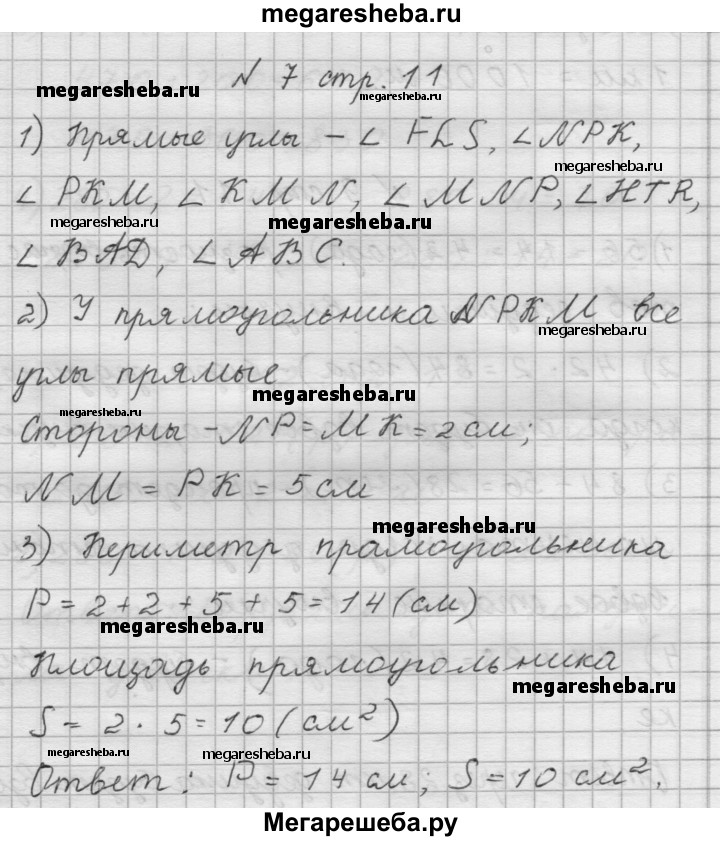 megaresheba.ru
N 7 стр. 11
megaresheba.ru
megaresheba.ru
1) Прямые углы - ∠ FLS, ∠ NPK,
megaresheba.ru
∠ PKM, ∠ KMN, ∠ MNP, ∠ HTR,
megaresheba.ru
megaresheba.ru
∠ BAD, ∠ ABC.
2) У прямоугольника NPKM все
megaresheba.ru
углы прямые
megaresheba.ru
megaresheba.ru
Стороны - NP = MK = 2 см;
NM = PK = 5 см
megaresheba.ru
3) Периметр прамоугольника
P = 2 + 2 + 5 + 5 = 14 (см)
megaresheba.ru
Площадь прямоугольника
megaresheba.ru
S = 2 · 5 = 10 (см²)
megaresheba.ru
megaresheba.ru
Ответ: P = 14 см; S = 10 см².
Мегарешеба.ру